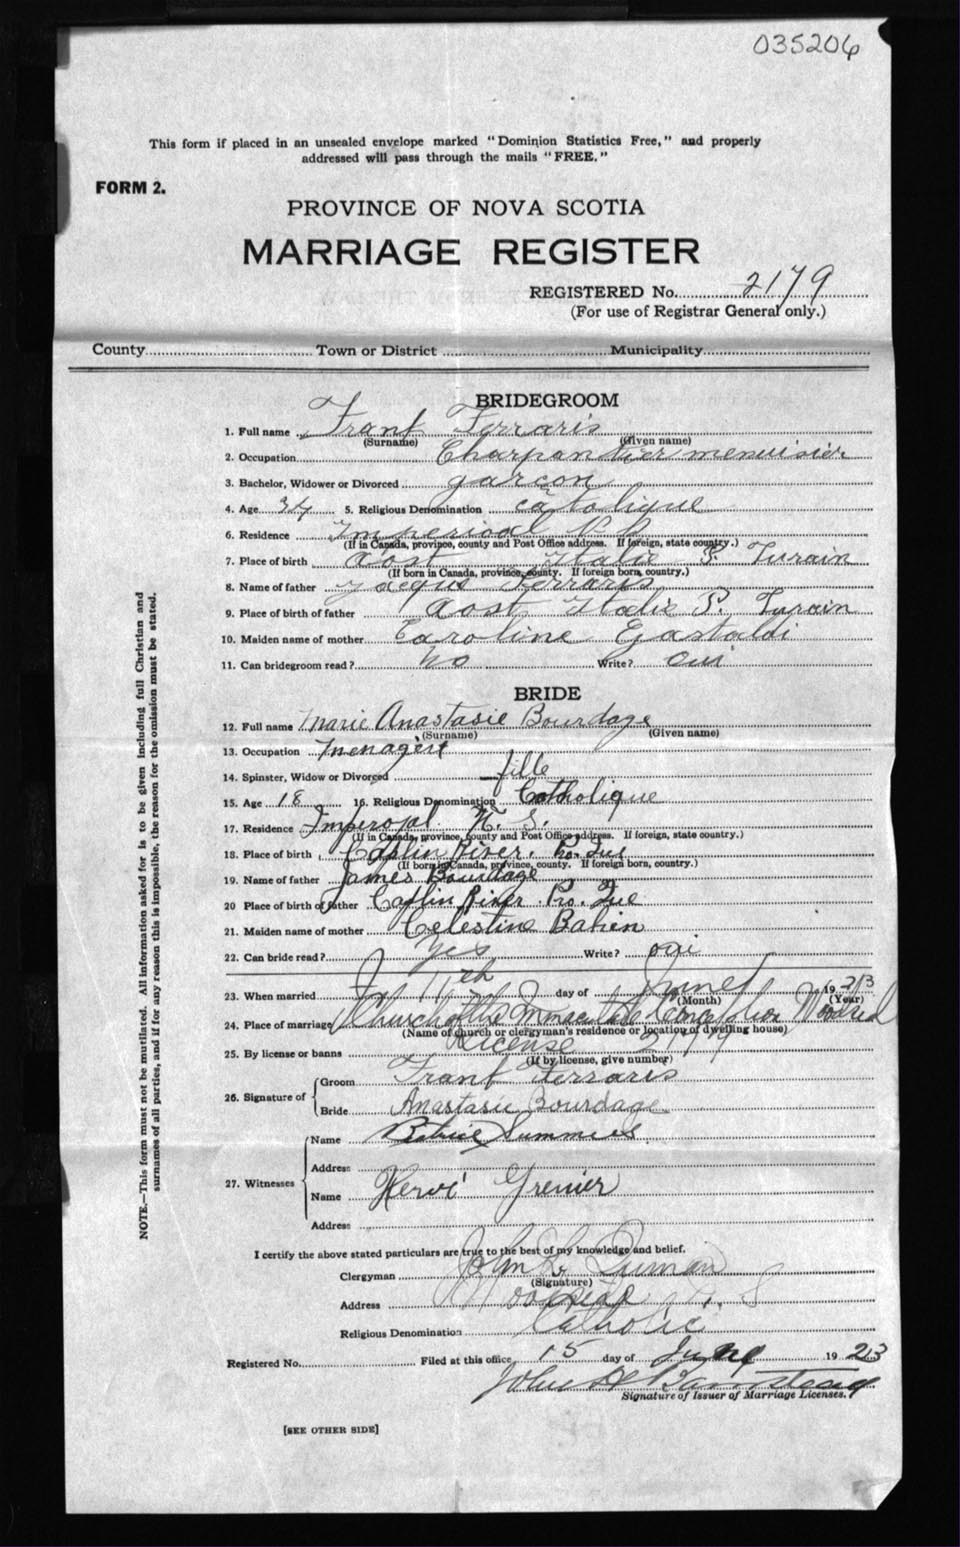 035206
This form if placed in an unsealed envelope marked "Dominion Statistics Free," and properly
addressed will pass through the mails "FREE."
FORM 2.
PROVINCE OF NOVA SCOTIA
MARRIAGE REGISTER
REGISTERED No. 2179
(For use of Registrar General only.)
County Town or District Municipality
BRIDEGROOM
1. Full name Frank Ferraris
(Surname) (Given name)
2. Occupation Charpantier menuisier
3. Bachelor, Widower or Divorced garcon
4. Age 34 5. Religious Denomination catolique
6. Residence Imperioal
(If in Canada, province, county and Post Office address. If foreign, state country.)
7. Place of birth Aost Italie P. Turain
(If born in Canada, province, county. If foreign born, country.)
8. Name of father Jacque Ferraris
9. Place of birth of father Aost Italie P. Turain
10. Maiden name of mother Caroline Gastaldi
11. Can bridegroom read? no Write? oui
BRIDE
12. Full name Marie Anastasie Bourdage
(Surname) (Given name)
13. Occupation menagere
14. Spinster, Widow or Divorced fille
15. Age 18 16. Religious Denomination Catholique
17. Residence Imperoyal N. S.
(If in Canada, province, county and Post Office address. If foreign, state country.)
18. Place of birth Caplin River. Pro. Que
(If born in Canada, province, county. If foreign born, country.)
19. Name of father James Bourdage
20 Place of birth of father Caplin River. Pro. Que
21. Maiden name of mother Celestine
22. Can bride read? Yes Write? oui
23. When married 11th day of June 1923
(Month) (Year)
24. Place of marriage Church of the Immaculate Conception Woodside
(Name of church or clergyman's residence or location of dwelling house)
25. By license or banns License 2179
(If by license, give number)
26. Signature of Groom Frank Ferraris
Bride Anastasie Bourdage
27. Witnesses Name Summers
Address
Name Hervé Grenier
Address
I certify the above stated particulars are true to the best of my knowledge and belief.
Clergyman John
(Signature)
Address Woodside N. S
Religious Denomination Catholic
Registered No. Filed at this office 15 day of June 1923
John
Signature of Issuer of Marriage Licenses.
[SEE OTHER SIDE]
NOTE.—This form must not be mutilated. All information asked for is to be given including full Christian and
surnames of all parties, and if for any reason this is impossible, the reason for the omission must be stated.